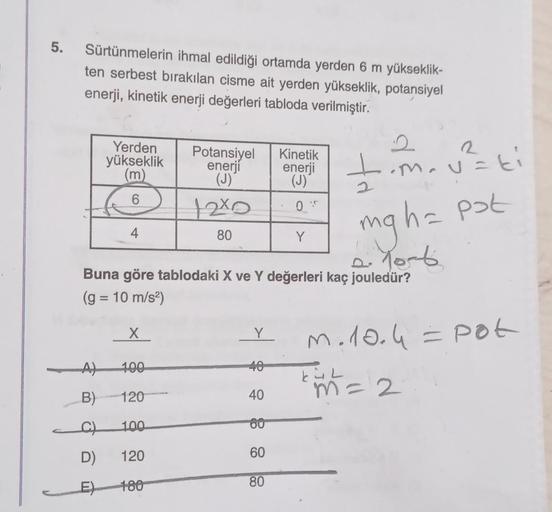 5. Sürtünmelerin ihmal edildiği ortamda yerden 6 m yükseklik-
ten serbest bırakılan cisme ait yerden yükseklik, potansiyel
enerji, kinetik enerji değerleri tabloda verilmiştir.
Yerden yükseklik (m) Potansiyel enerji (J) Kinetik enerji (J)
6 12X0 0
4 80 Y
1/2 2 .m.v² = ki
mgh = pot
2.10.6
Buna göre tablodaki X ve Y değerleri kaç jouledür?
(g = 10 m/s²)
m.10.4 = pot
m = 2
X Y
A) 100 40
B) 120 40
C) 100 60
D) 120 60
E) 180 80